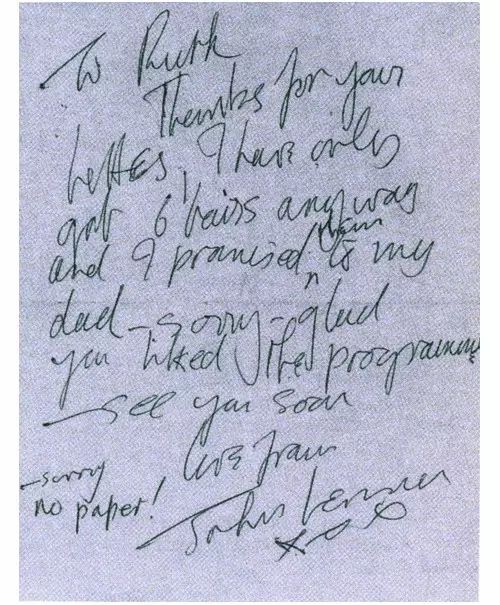 To Ruth
Thanks for your
letter, I have only
got 6 hairs anyway
and I promised them to my
dad – sorry – glad
you liked the programme
– see you soon
love from
John Lennon
xox
– sorry
no paper!